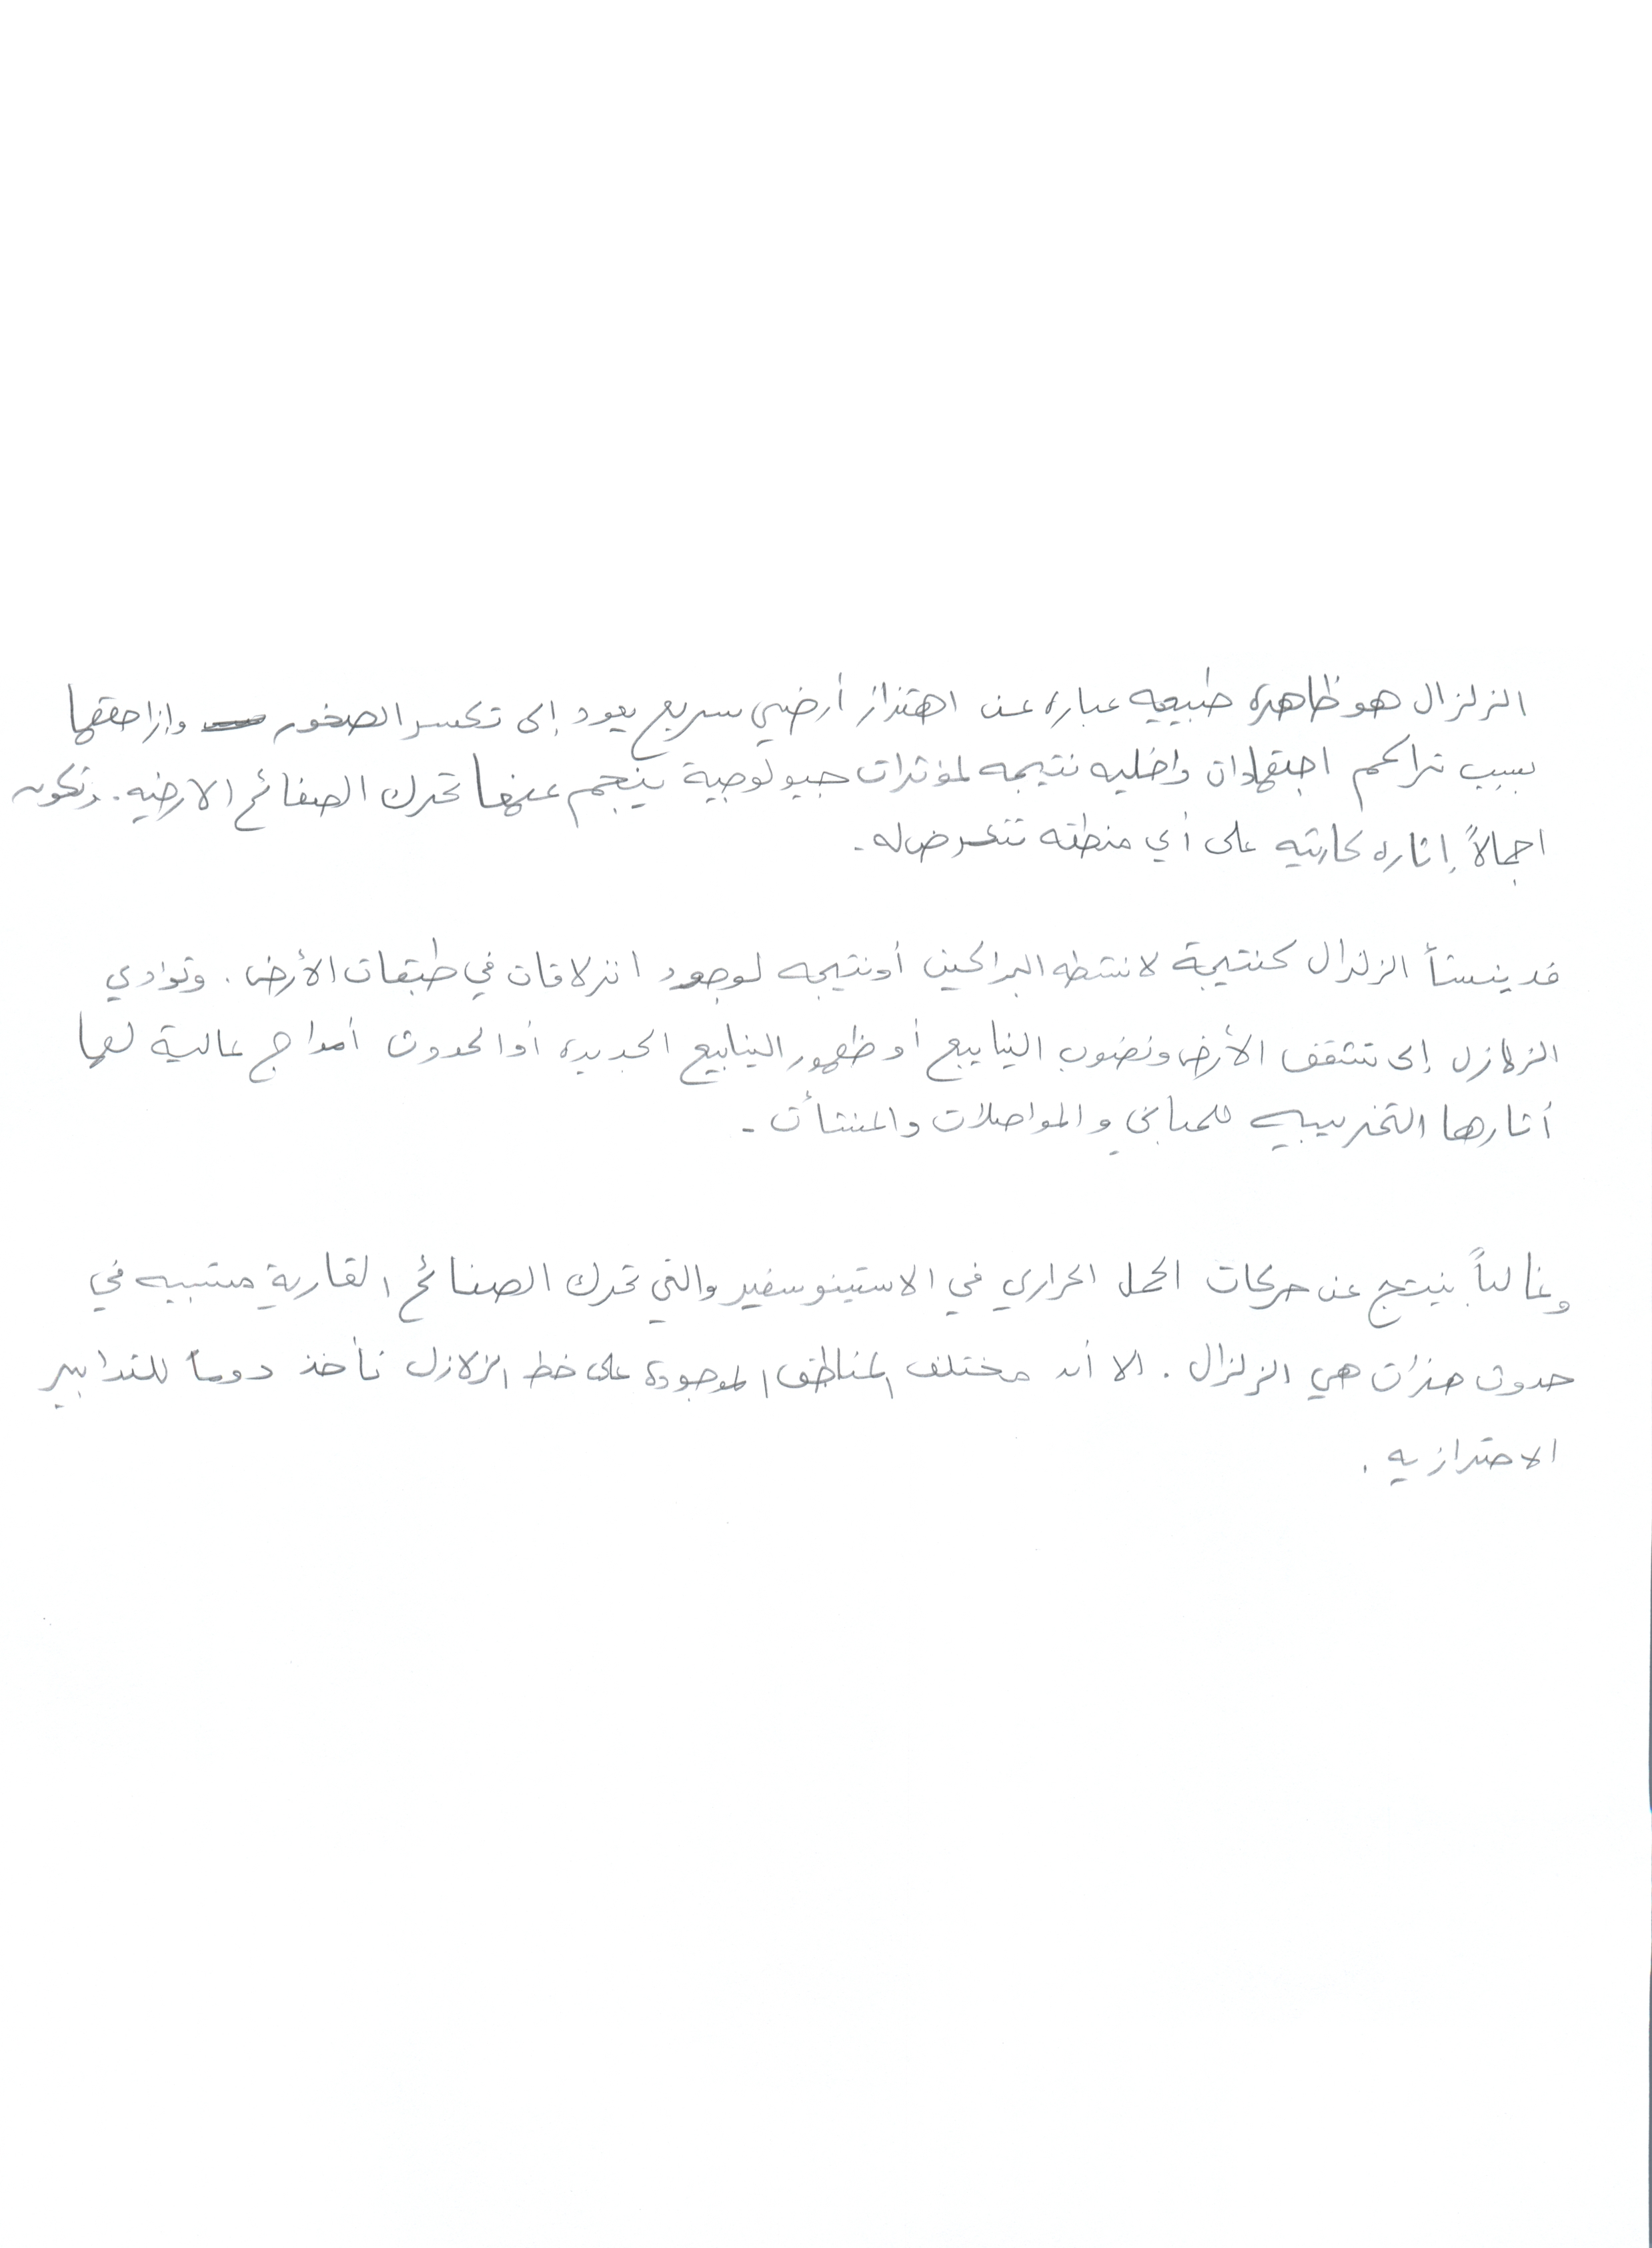 الزلزال هو ظاهرة طبيعيه عباره عن اهتزاز أرضي سريع يعود إلى تكسر الصخور وإزاحقها
بسبب تراكم اجتهادات داخليه نتيجه لمؤثرات جيولوجية ينجم عنها تحرك الصفائح الارضيه. وتكون
اجمالاً إثاره كارثيه على أي منطقه تتعرض له.
قد ينشأ الزلزال كنتيجة لانشطه البراكين أو نتيجه لوجود انزلاقات في طبقات الأرض. وتؤدي
الزلازل إلى تشقق الأرض ونضوب الينابيع أو ظهور الينابيع الجديده أو الحدوث أمواج عالية لها
أثارها التخريبيه للمباني والمواصلات والمنشأت.
وغالباً ينتج عن حركات الحمل الحراري في الاستينوسفير والتي تحرك الصفائح القارية متسببه في
حدوث هزات هي الزلزال. الا أن مختلف المناطق الموجودة على خط الزلازل تأخذ دوما للتدابير
الاحترازيه.